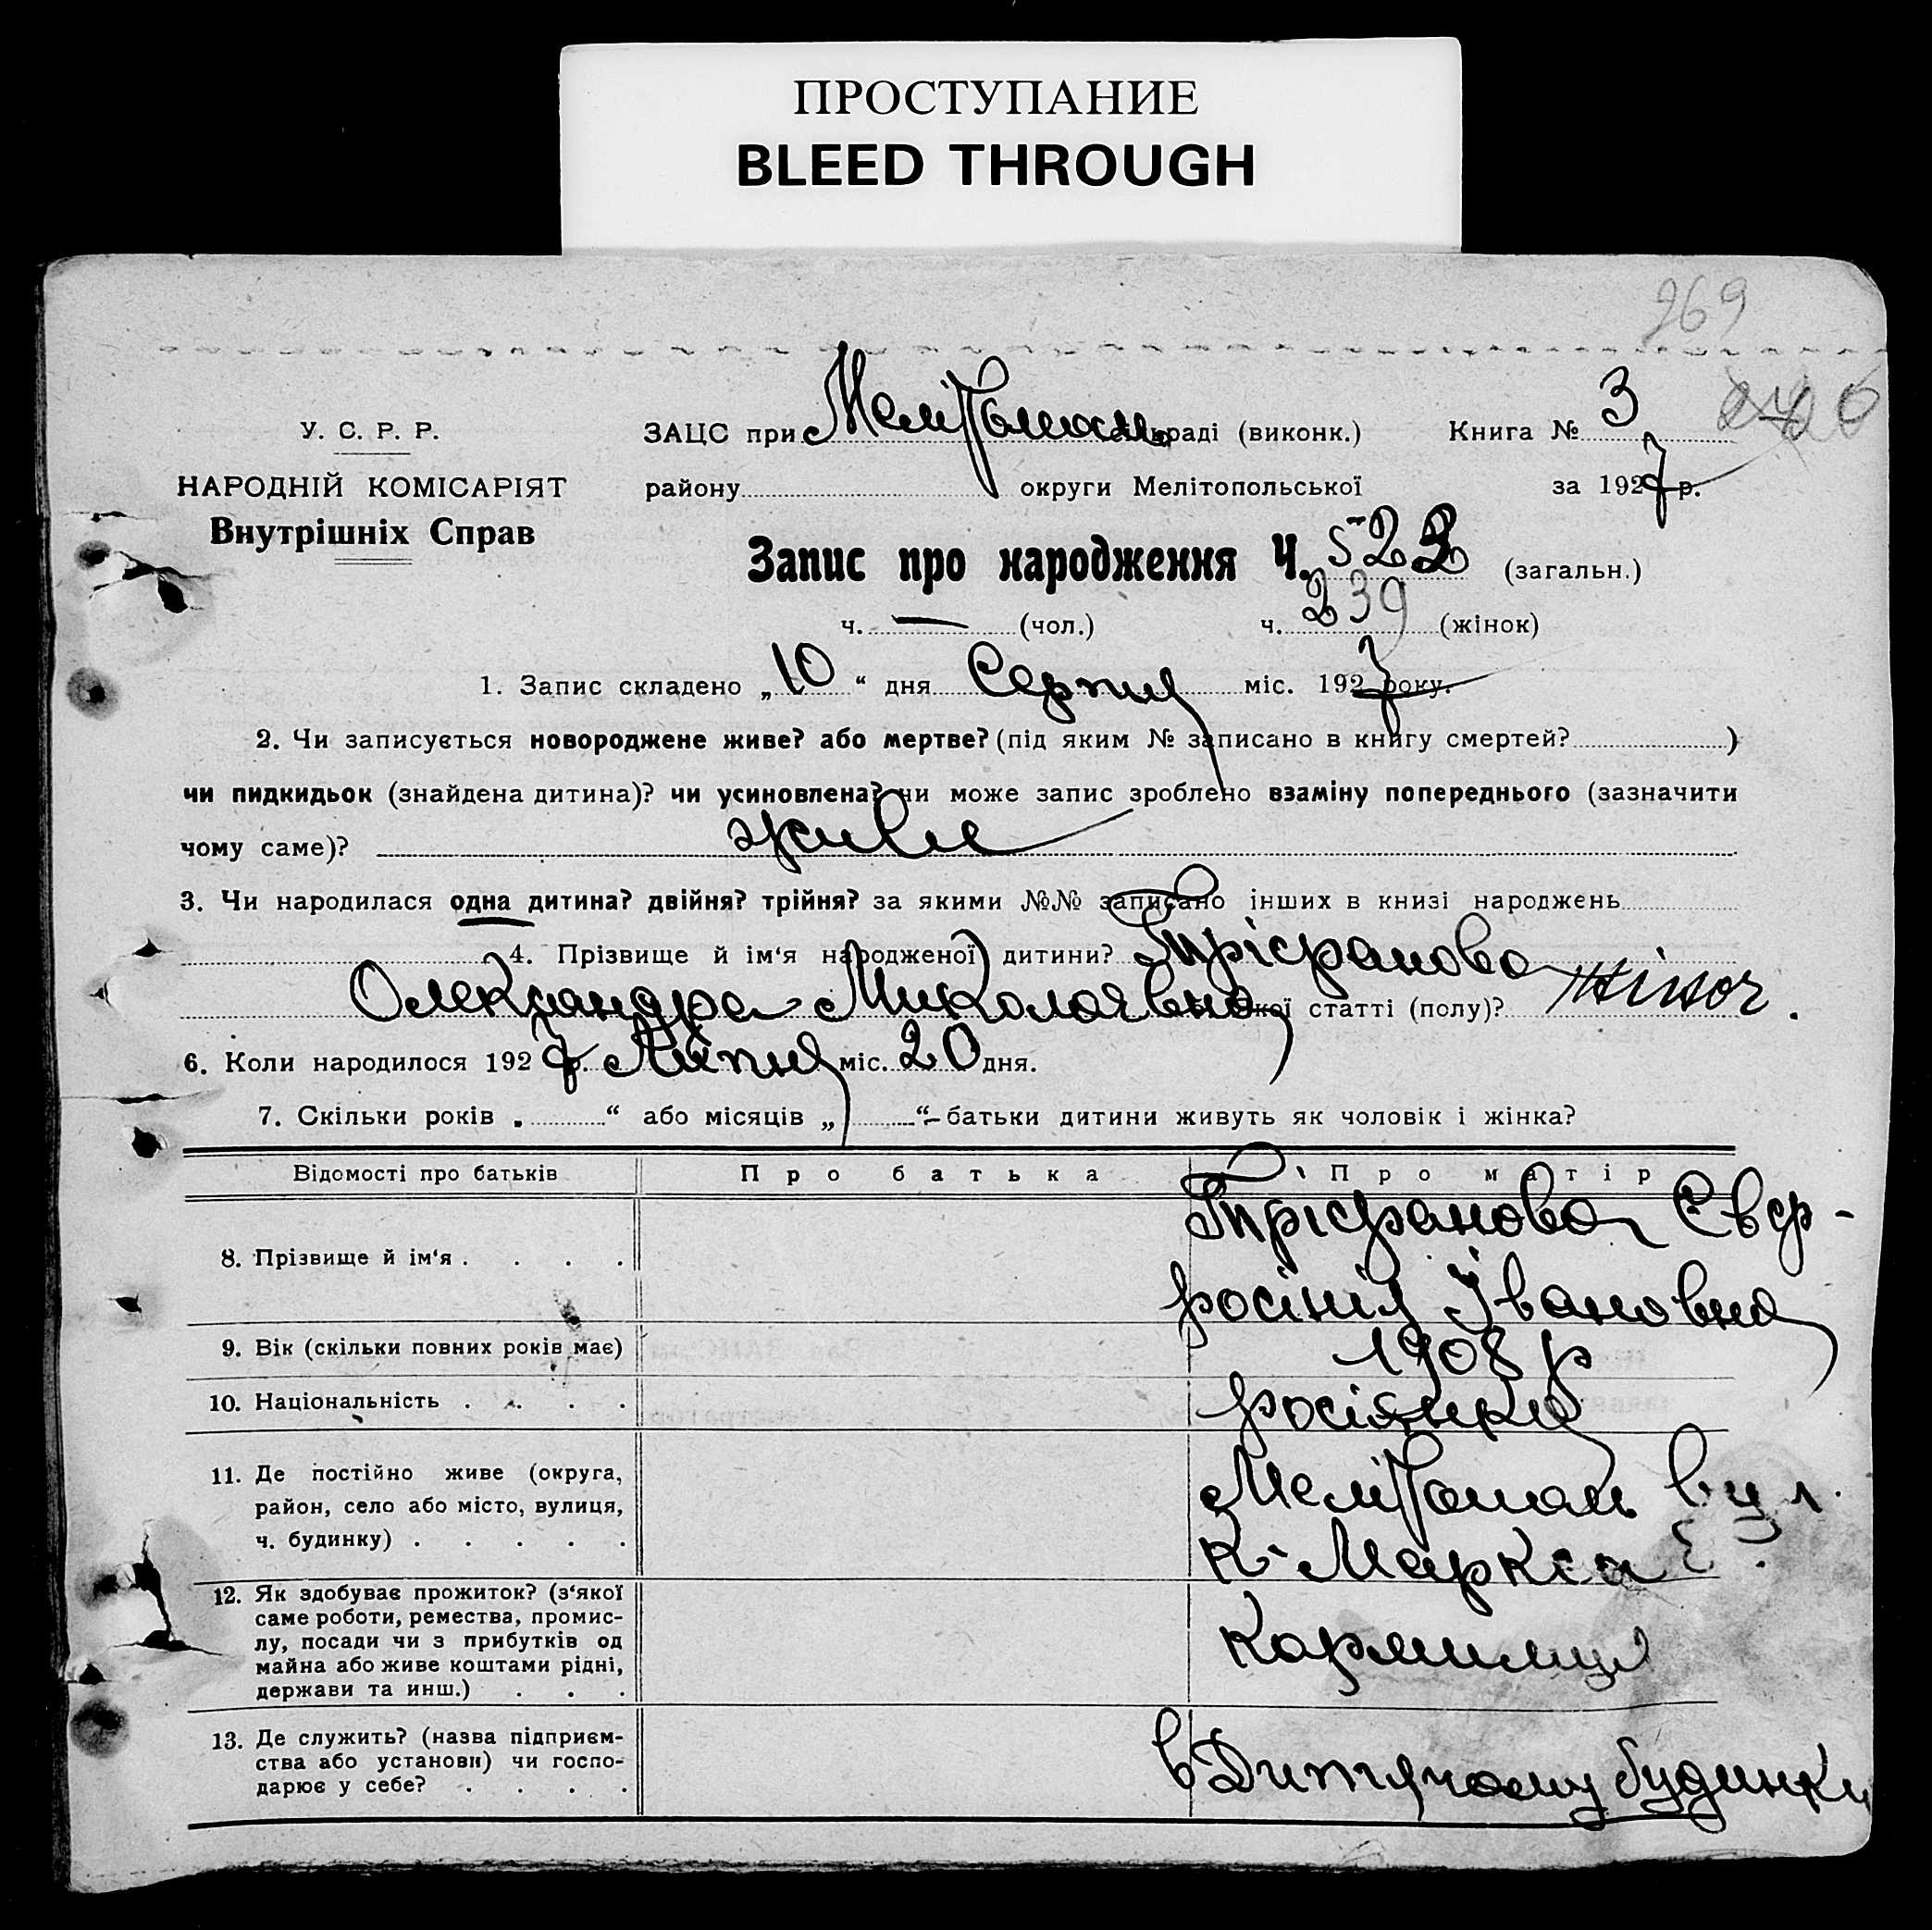 ПРОСТУПАНИЕ
BLEED THROUGH
269
У. С. Р. Р.
НАРОДНІЙ КОМІСАРІЯТ
Внутрішніх Справ
ЗАЦС при раді (виконк.) Книга № 3
району округи Мелітопольської за 1927 р.
Запис про народження Ч. 523 (загальн.)
ч. — (чол.) ч. 239 (жінок)
1. Запис складено „10“ дня Серпня міс. 1927 року.
2. Чи записується новороджене живе? або мертве? (під яким № записано в книгу смертей? )
чи пидкидьок (знайдена дитина)? чи усиновлена? чи може запис зроблено взаміну попереднього (зазначити
чому саме)? живе
3. Чи народилася одна дитина? двійня? трійня? за якими №№ записано інших в книзі народжень
4. Прізвище й ім‘я народженої дитини?
Олександра Миколаявна якої статті (полу)? жіноч.
6. Коли народилося 1927 р. Липня міс. 20 дня.
7. Скільки років „ “ або місяців „ “ – батьки дитини живуть як чоловік і жінка?
Відомості про батьків Про батька Про матір
8. Прізвище й ім‘я . . . . Євф-
росінія Івановна
9. Вік (скільки повних років має) 1908 р
10. Національність . . . . росіянка
11. Де постійно живе (округа, район, село або місто, вулиця, ч. будинку) . . . . . Меліτополь вул.
К-Маркса
12. Як здобуває прожиток? (з‘якої
саме роботи, ремества, промис-
лу, посади чи з прибутків од
майна або живе коштами рідні,
держави та инш.) . . . Кормилиця
13. Де служить? (назва підприєм-
ства або установи) чи госпо-
дарює у себе? . . . . в Дитячому будинку